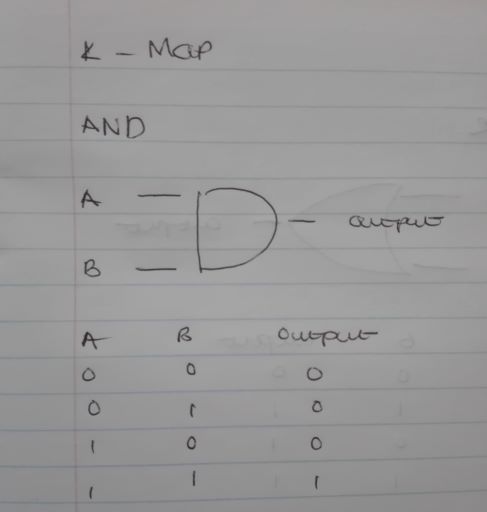 K - Map
AND
A
output
B
A B Output
0 0 0
0 1 0
1 0 0
1 1 1